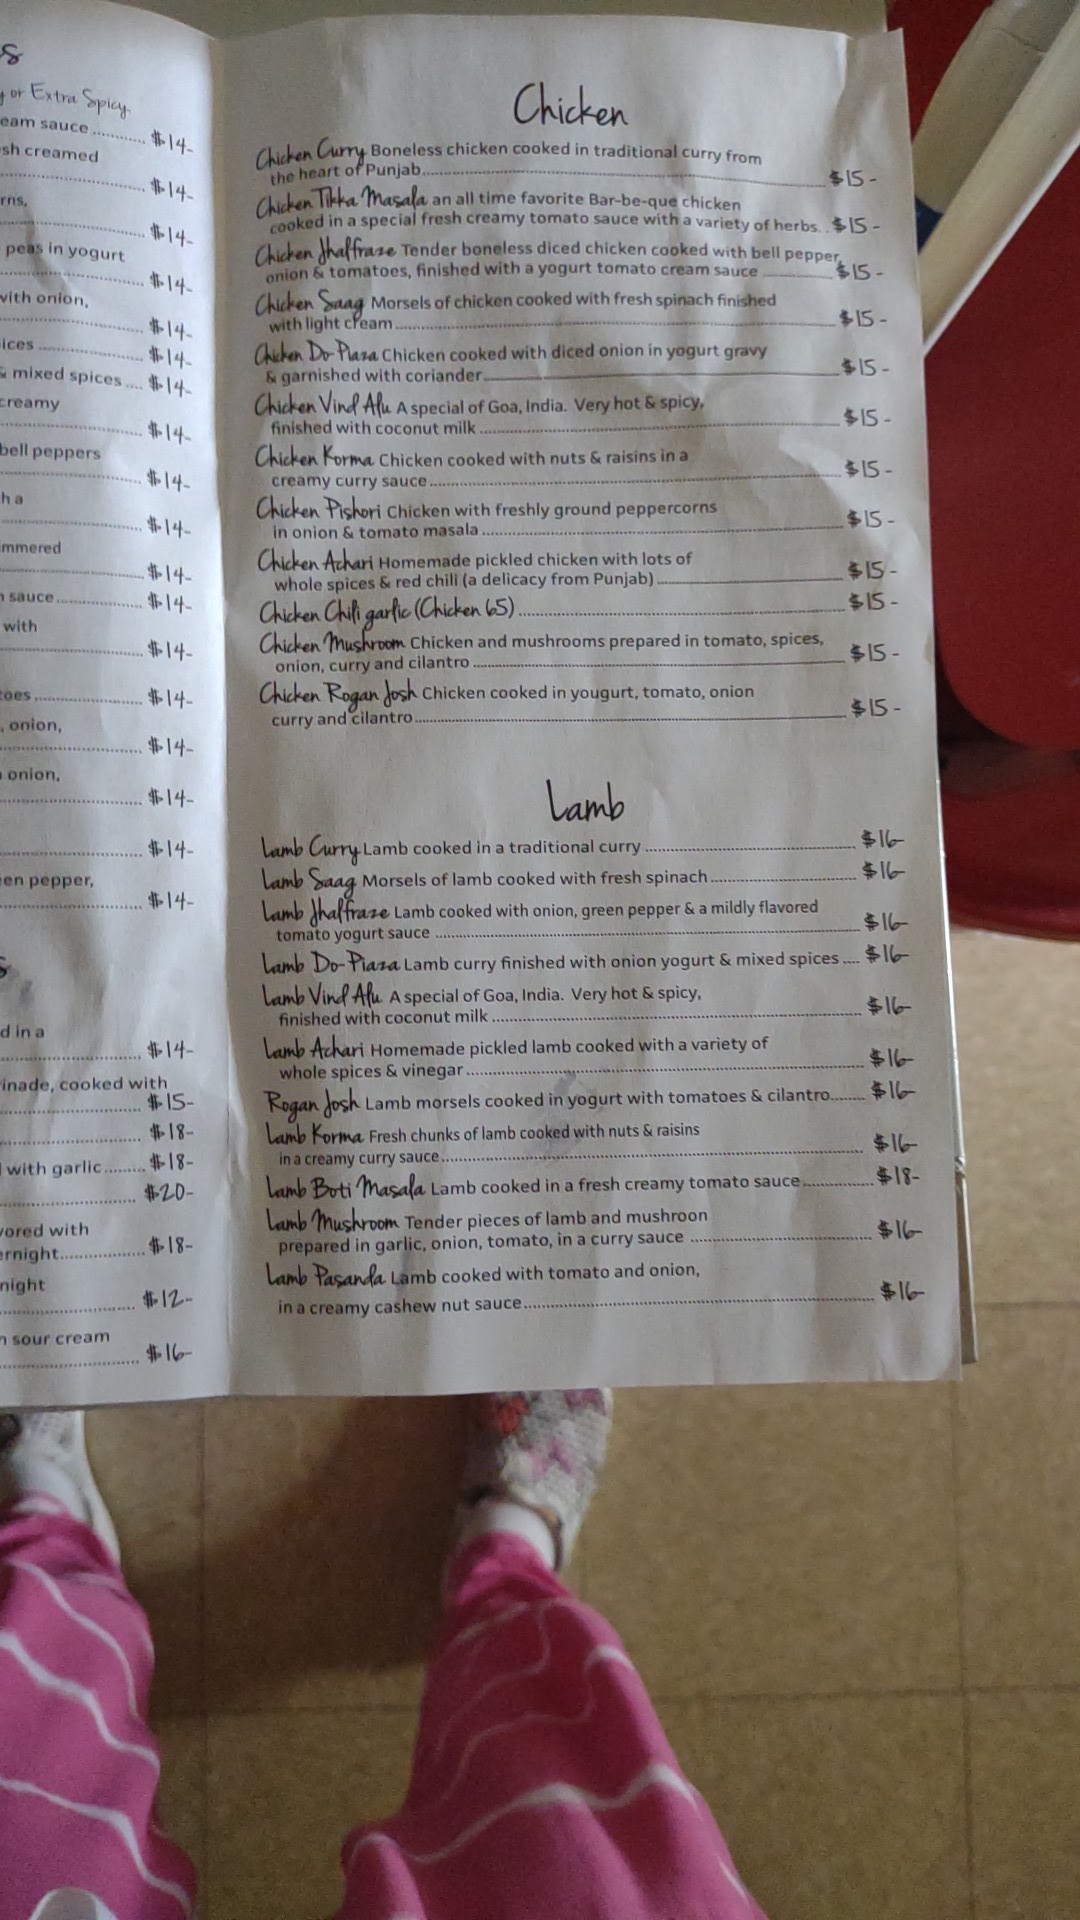 s
y or Extra Spicy
eam sauce ............ $14-
sh creamed
............ $14-
rns,
............ $14-
peas in yogurt
............ $14-
with onion,
............ $14-
ices ............ $14-
& mixed spices .... $14-
creamy
............ $14-
bell peppers
............ $14-
h a
............ $14-
mmered
............ $14-
n sauce............ $14-
with
............ $14-
toes............ $14-
, onion,
............ $14-
onion,
............ $14-
............ $14-
en pepper,
............ $14-
s
d in a
............ $14-
inade, cooked with
............ $15-
............ $18-
with garlic......... $18-
............ $20-
vored with
ernight............ $18-
night
............ $12-
n sour cream
............ $16-
Chicken
Chicken Curry Boneless chicken cooked in traditional curry from
the heart of Punjab............ $15-
Chicken Tikka Masala an all time favorite Bar-be-que chicken
cooked in a special fresh creamy tomato sauce with a variety of herbs. . $15-
Chicken Jhalfraze Tender boneless diced chicken cooked with bell pepper,
onion & tomatoes, finished with a yogurt tomato cream sauce ............ $15-
Chicken Saag Morsels of chicken cooked with fresh spinach finished
with light cream............ $15-
Chicken Do-Piaza Chicken cooked with diced onion in yogurt gravy
& garnished with coriander............ $15-
Chicken Vind Alu A special of Goa, India. Very hot & spicy,
finished with coconut milk ............ $15-
Chicken Korma Chicken cooked with nuts & raisins in a
creamy curry sauce............ $15-
Chicken Pishori Chicken with freshly ground peppercorns
in onion & tomato masala ............ $15-
Chicken Achari Homemade pickled chicken with lots of
whole spices & red chili (a delicacy from Punjab) ............ $15-
Chicken Chili garlic (Chicken 65) ............ $15-
Chicken Mushroom Chicken and mushrooms prepared in tomato, spices,
onion, curry and cilantro ............ $15-
Chicken Rogan Josh Chicken cooked in yougurt, tomato, onion
curry and cilantro............ $15-
Lamb
Lamb Curry Lamb cooked in a traditional curry ............ $16-
Lamb Saag Morsels of lamb cooked with fresh spinach............ $16-
Lamb Jhalfraze Lamb cooked with onion, green pepper & a mildly flavored
tomato yogurt sauce ............ $16-
Lamb Do-Piaza Lamb curry finished with onion yogurt & mixed spices .... $16-
Lamb Vind Alu A special of Goa, India. Very hot & spicy,
finished with coconut milk ............ $16-
Lamb Achari Homemade pickled lamb cooked with a variety of
whole spices & vinegar ............ $16-
Rogan Josh Lamb morsels cooked in yogurt with tomatoes & cilantro........ $16-
Lamb Korma Fresh chunks of lamb cooked with nuts & raisins
in a creamy curry sauce............ $16-
Lamb Boti Masala Lamb cooked in a fresh creamy tomato sauce............ $18-
Lamb Mushroom Tender pieces of lamb and mushroon
prepared in garlic, onion, tomato, in a curry sauce ............ $16-
Lamb Pasanda Lamb cooked with tomato and onion,
in a creamy cashew nut sauce............ $16-